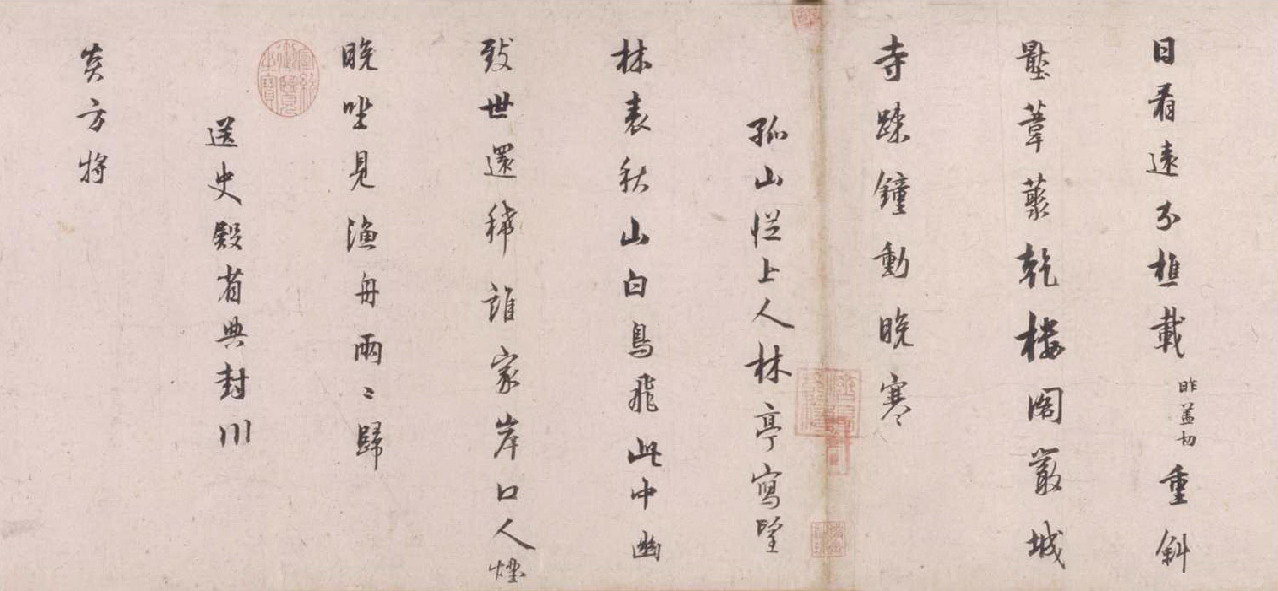 日看遠分樵載昨盖切重斜
壓葦叢乾樓閣嚴城
寺疎鐘動晚寒
孤山從上人林亭寫望
林表秋山白鳥飛此中幽
致世還稀誰家岸口人煙
晚坐見漁舟兩〻歸
送史殿省典封川
炎方將